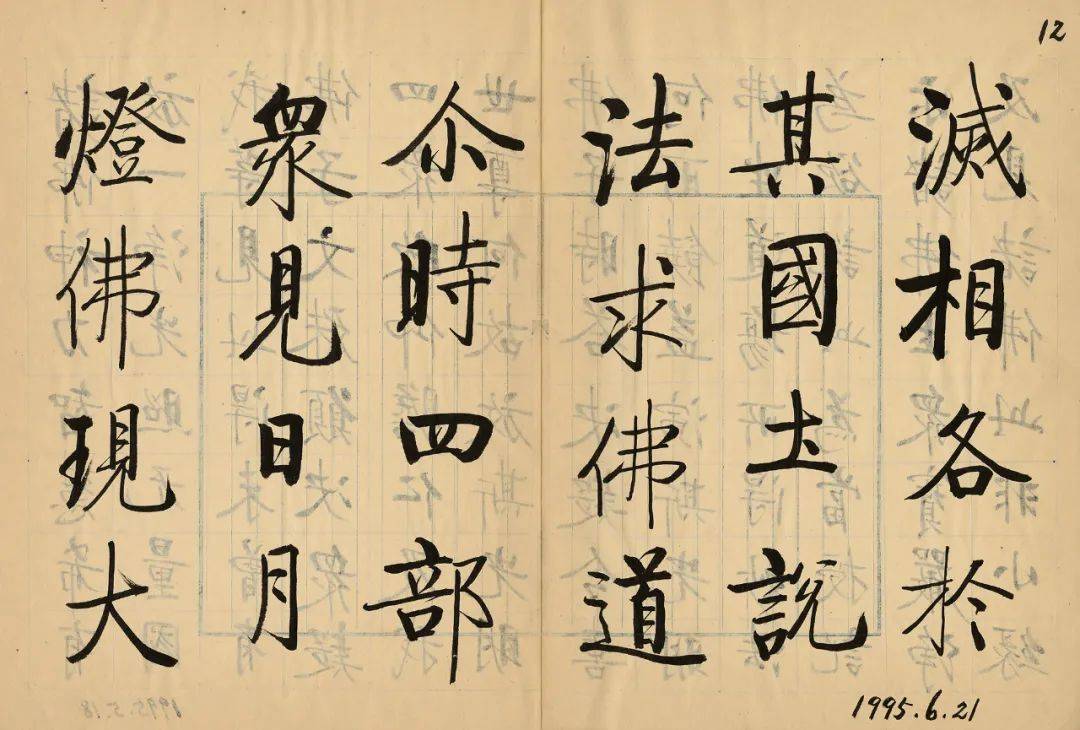 12
滅相各於
其國土說
法求佛道
尒時四部
眾見日月
燈佛現大
1995.6.21